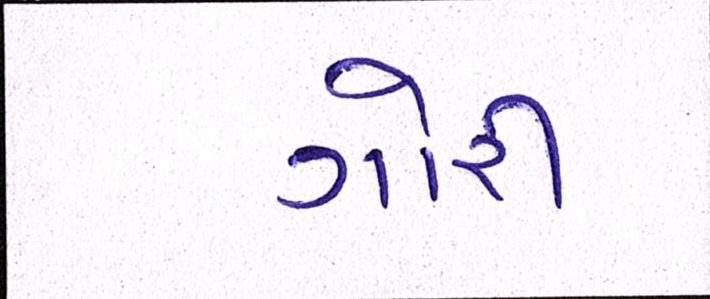 ગોરી